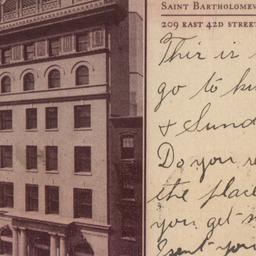 SAINT BARTHOLOMEW
209 EAST 42D STREET
This is
go to
& Sund
Do you re
the place
you get
I sent you